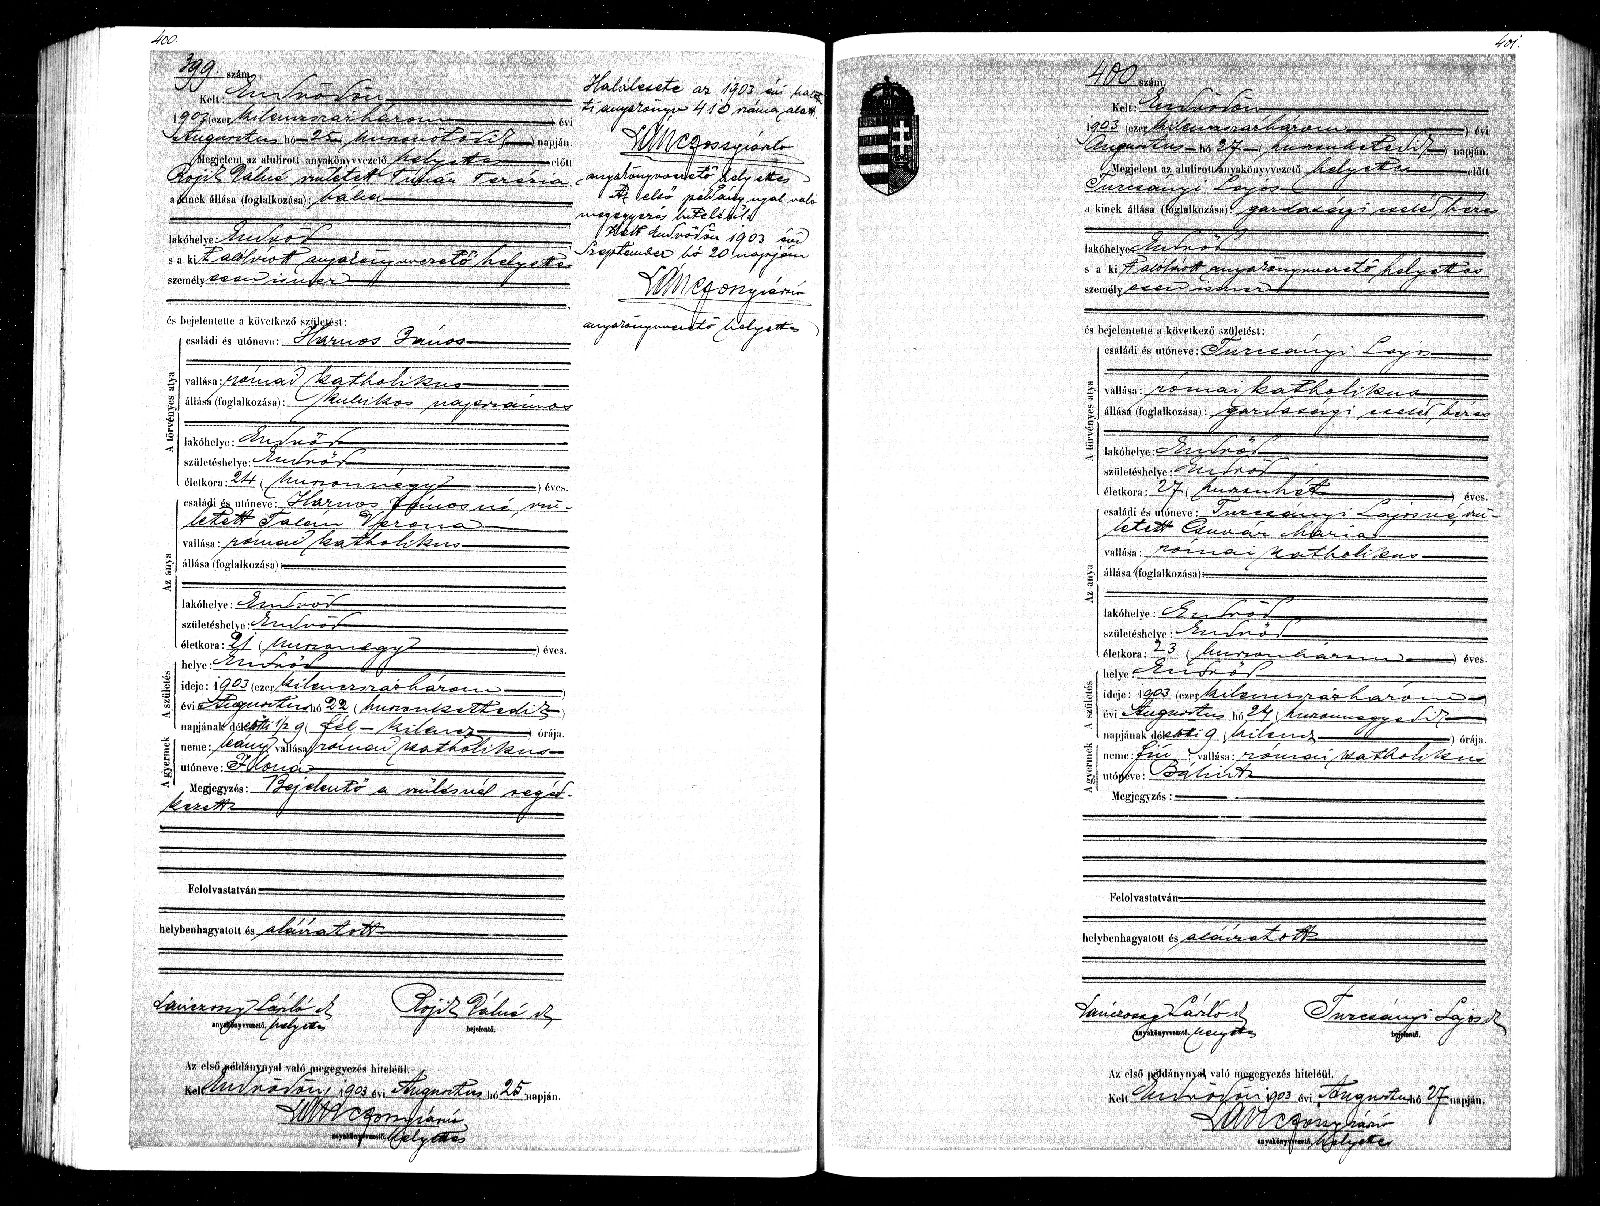 400.
399 szám
Kelt: Endrődön
1903 (ezer kilenczszázhárom) évi
Augusztus hó 25 huszonötödik) napján.
Megjelent az alulirott anyakönyvvezető helyettes előtt
Rojik Pálné született Timár Terézia
a kinek állása (foglalkozása): bába
lakóhelye Endrőd
s a kit alolirott anyakönyvvezető helyettes
személyesen ismer
és bejelentette a következő születést:
A törvényes atya
családi és utóneve: Harnos János
vallása: római katholikus
állása (foglalkozása): kubikos napszámos
lakóhelye: Endrőd
születéshelye: Endrőd
életkora: 24 (huszonnégy) éves.
Az anya
családi és utóneve: Harnos Jánosné, szü-
letett Verona
vallása: római katholikus
állása (foglalkozása):
lakóhelye: Endrőd
születéshelye: Endrőd
életkora: (huszonegy) éves.
A születés
helye: Endrőd
ideje: 1903 (ezer kilenczszázhárom)
évi Augusztus hó 22 (huszonkettedik)
napjának délelőtti 1/2 9 (fél kilencz) órája.
A gyermek
neme: leány vallása: római katholikus
utóneve: Ilona
Megjegyzés: Bejelentő a szülésnél segéd-
kezett
Felolvastatván
helybenhagyatott és aláíratott
Lánczossy László sk Rojik Pálné sk
anyakönyvvezető, helyettes bejelentő.
Az első példánynyal való megegyezés hiteléül.
Kelt Endrődön, 1903 évi Augusztus hó 25 napján.
anyakönyvvezető, helyettes
Halálesete az 1903 évi halot-
ti anyakönyv 410 száma alatt
anyakönyvvezető helyettes
Az első példánynyal való
megegyezés hiteléül
Kelt Endrődön 1903 évi
Szeptember hó 20 napján
anyakönyvvezető helyettes
401.
400 szám
Kelt: Endrődön
1903 (ezer kilenczszázhárom) évi
Augusztus hó 27 huszonhetedik) napján.
Megjelent az alulirott anyakönyvvezető helyettes előtt
Turcsányi Lajos
a kinek állása (foglalkozása): gazdasági cseléd, béres
lakóhelye Endrőd
s a kit alólirott anyakönyvvezető helyettes
személyesen ismer
és bejelentette a következő születést:
A törvényes atya
családi és utóneve: Turcsányi Lajos
vallása: római katholikus
állása (foglalkozása): gazdasági cseléd, béres
lakóhelye: Endrőd
születéshelye: Endrőd
életkora: 27 (huszonhét) éves.
Az anya
családi és utóneve: Turcsányi Lajosné, szü-
letett Csuvár Mária
vallása: római katholikus
állása (foglalkozása):
lakóhelye: Endrőd
születéshelye: Endrőd
életkora: 23 (huszonhárom) éves.
A születés
helye Endrőd
ideje: 1903 (ezer kilenczszázhárom)
évi Augusztus hó 24 (huszonnegyedik
napjának délelőtti 9 (kilencz) órája.
A gyermek
neme: fiú vallása: római katholikus
utóneve: Bálint
Megjegyzés:
Felolvastatván
helybenhagyatott és aláíratott
Lánczossy László sk Turcsányi Lajos sk
anyakönyvvezető, helyettes bejelentő.
Az első példánynyal való megegyezés hiteléül.
Kelt Endrődön 1903 évi Augusztus hó 27 napján.
anyakönyvvezető, helyettes